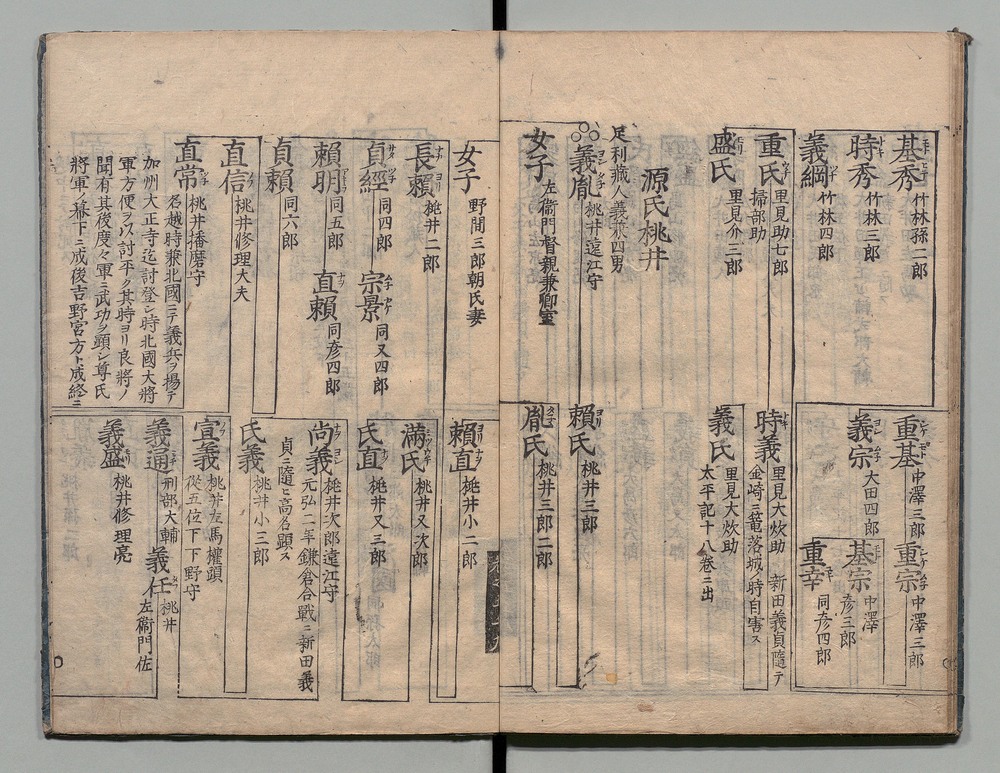 基秀 竹林孫二郎
時秀 竹林三郎
義綱 竹林四郎
重氏 里見助七郎
掃部助
盛氏 里見介三郎
重基 中澤三郎
重宗 中澤三郎
義宗 大田四郎
基宗 中澤
彦三郎
重幸 同彦四郎
時義 里見大炊助 新田義貞隨テ
金崎ニ篭落城ノ時自害ス
義氏 里見大炊助
太平記十八卷ニ出
源氏桃井
足利藏人義兼四男
義胤 桃井遠江守
女子 左衞門督親兼卿室
賴氏 桃井三郎
胤氏 桃井三郎二郎
女子 野間三郎朝氏妻
長賴 桃井二郎
貞經 同四郎
宗景 同又四郎
賴明 同五郎
直賴 同彦四郎
貞賴 同六郎
直信 桃井修理大夫
直常 桃井播磨守
名越時兼北國ニテ義兵ヲ揚テ
加州大正寺迄討登シ時北國大將
軍方便ヲ以討平ク其時ヨリ良將ノ
聞有其後度々軍ニ武功ヲ顕シ尊氏
將軍ノ幕下ニ成後吉野宮方ト成終ニ
賴直 桃井小二郎
滿氏 桃井又次郎
氏直 桃井又三郎
尚義 桃井次郎遠江守
元弘二年鎌倉合戰ニ新田義
貞ニ隨ヒ高名顕ス
氏義 桃井小三郎
宣義 桃井左馬權頭
從五位下下野守
義通 刑部大輔
義任 桃井
左衞門佐
義盛 桃井修理亮